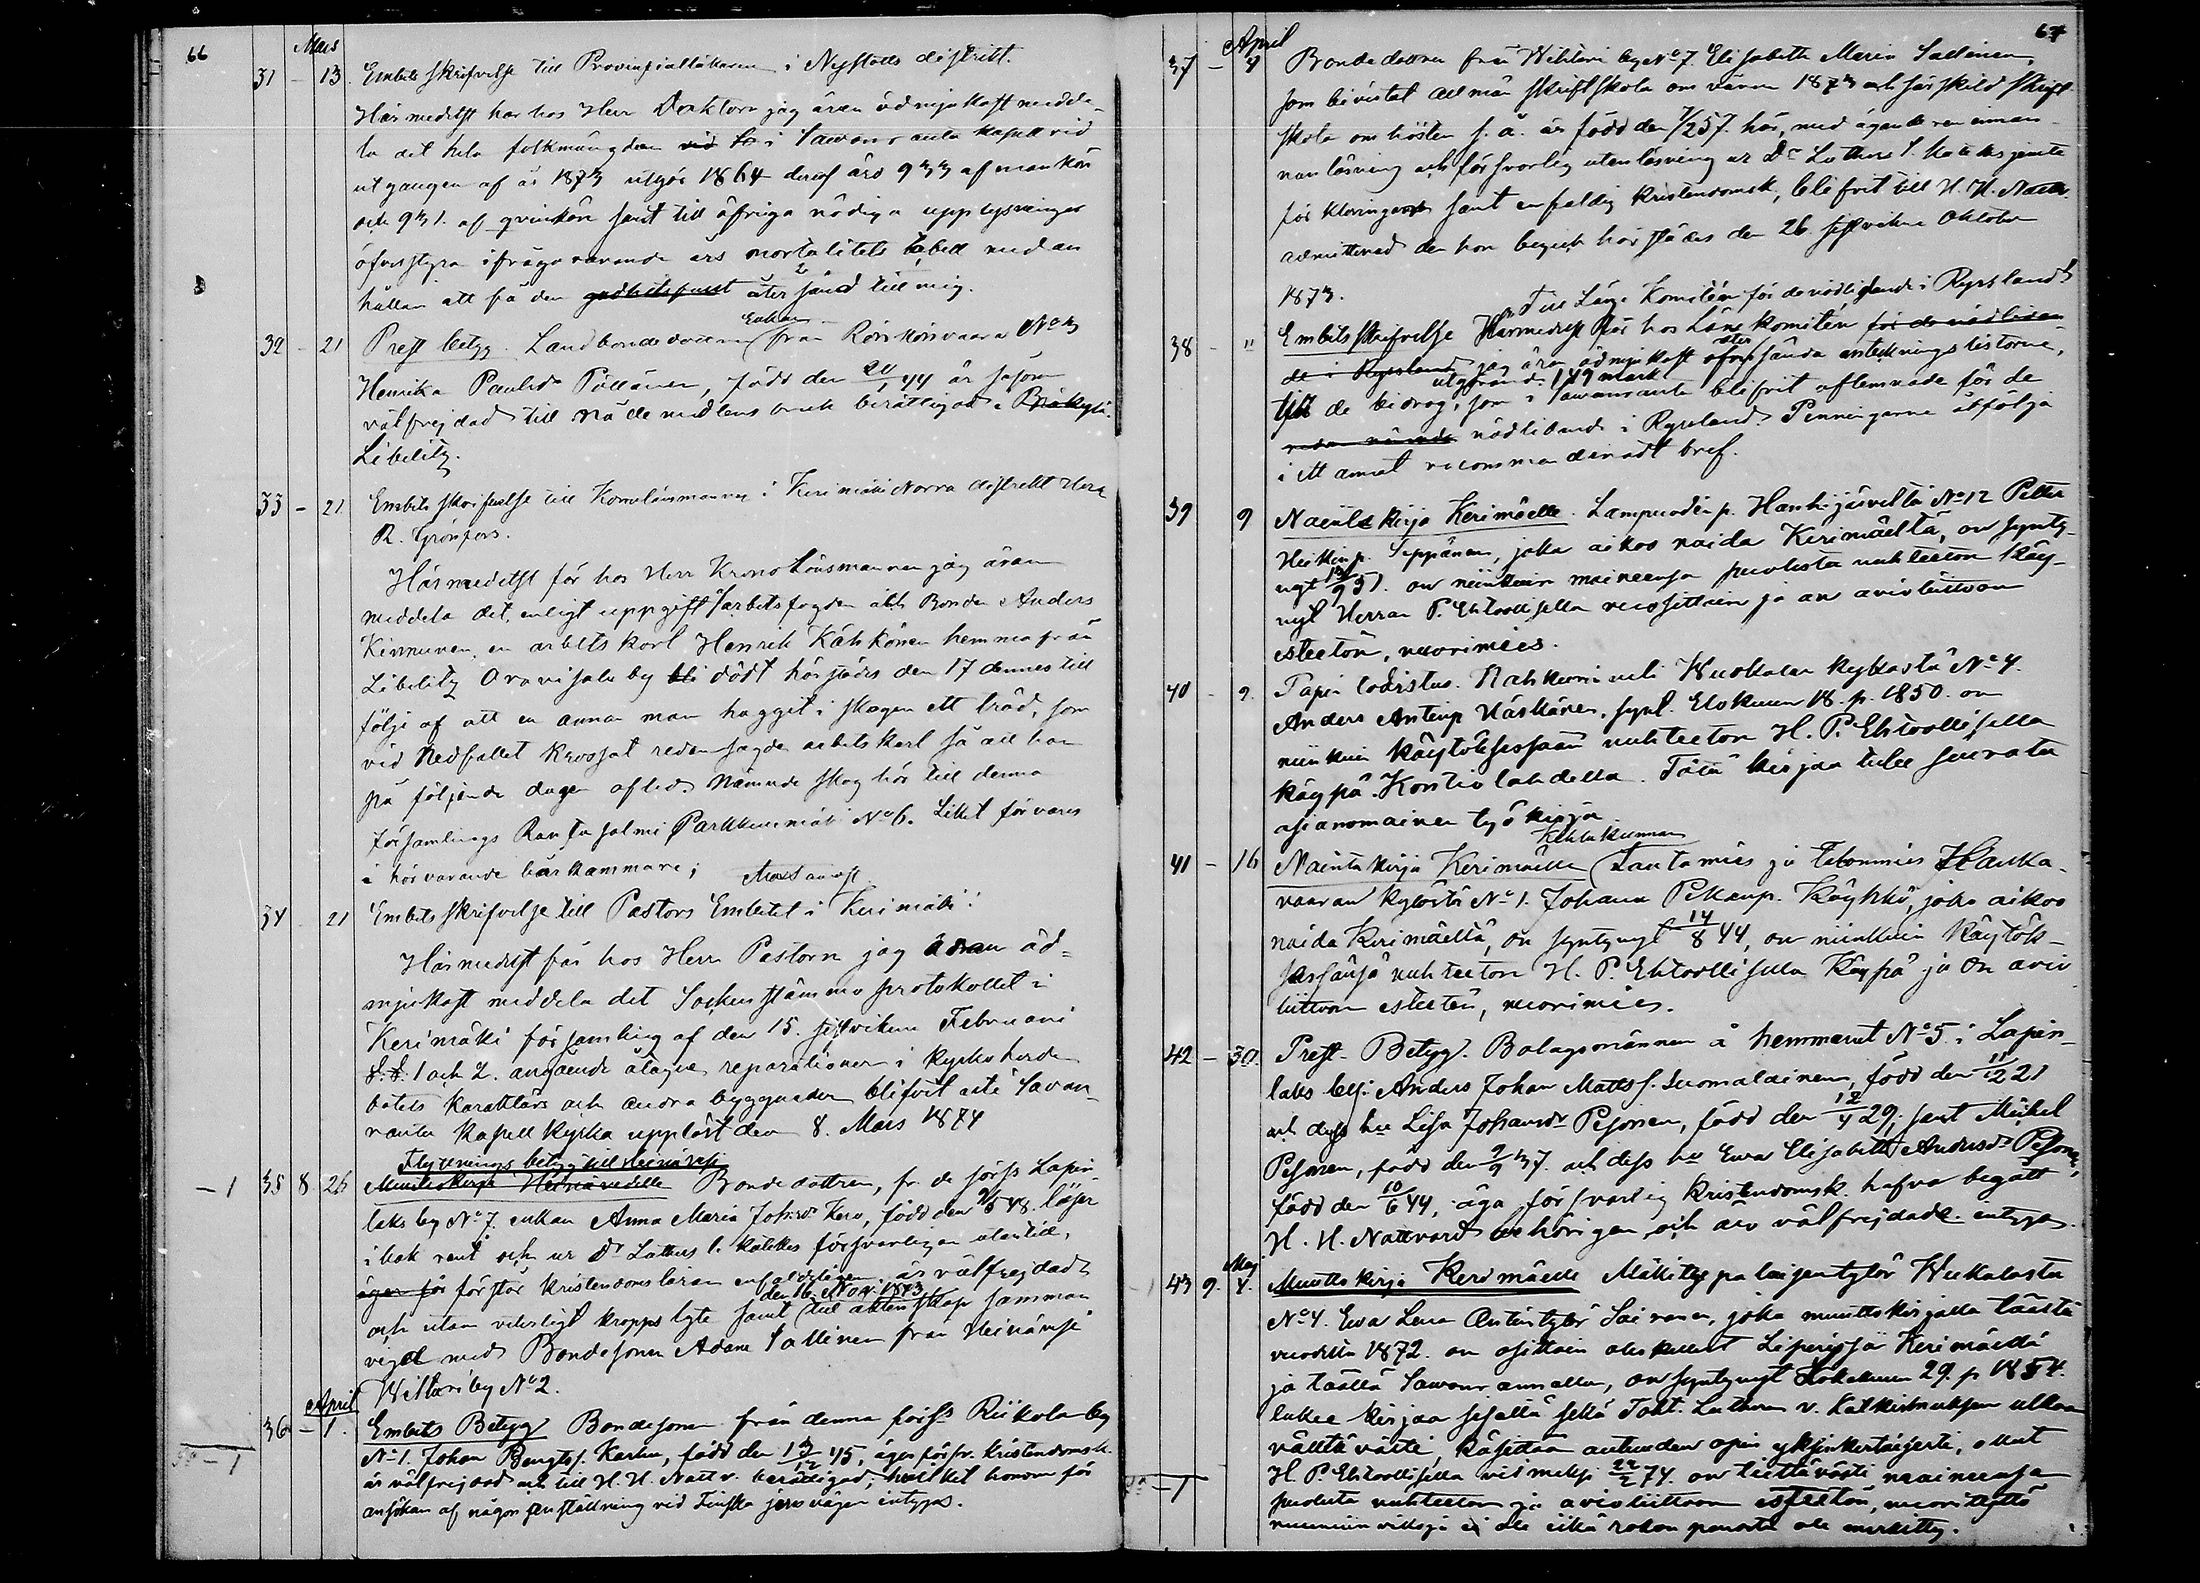 66
Mars
31 - 13. Embets skrifvelse till Provinsialläkaren i Nyslotts distrikt.
Härmedelst har hos Herr Doktorn jag äran ödmjukast medde-
la det hela folkmängden vid i Sawonranta kapell vid
utgången af år 1873 utgör 1864 deraf äro 933 af mankön
och 931. af qvinkön samt till öfriga nödiga upplysningar
öfverstyra ifrågavarande års mortalitets tabell med an
hållan att få den godhetsfullt återsänd till mig.
32 - 21 Prest betyg. Landbondedottren Enkan från Rönkönvaara No 3
Henrika Paulsdr Pöllänen, född den 20/1 44 är såsom
välfrejdad till Nådemedlens bruk berättigad i
Libelitz.
33 - 21 Embets skrifvelse till Kronolänsmannen i Kerimäki Norra distrikt Herr
R. Grönfors.
Härmedelst får hos Herr Kronolänsmannen jag äran
meddela det, enligt uppgift arbetsfogden och Bonden Anders
Kinnunen, en arbetskarl Henrik Kähkönen hemma från
Libelitz Oravisalo by dödt härstädes den 17 dennes till
följe af att en annan man huggit i skogen ett träd, som
vid Nedfallet krossat redan sagde arbetskarl så att han
på följande dagen afled. Nämnde skog hör till denna
församlings Rantasalmi Parkkuumäki No 6. Liket förvaras
i härvarande bårkammare;
34 21 Embets skrifvelse till Pastors Embetet i Kerimäki!
Härmedelst får hos Herr Pastorn jag äran öd-
mjukast meddela det Sockenstämmo protokollet i
Kerimäki församling af den 15. sistvikne Februari
§.§. 1 och 2. angående ålagde reparationer i kyrkoherde
bolets karaktärs och andra byggnader blifvit uti Savon
ranta kapell kyrka uppläst den 8. Mars 1874
Flyttnings betyg till Heinävesi
- 1 35 8 26 Muuttokirja Heinävedelle Bondedottren, fr. de förss Lapin
laks by No 7. enkan Anna Maria Johansdr Kero, född den 9/5 48. läser
i bok rent och ur Dr Luthers l. katekes försvarligen utantill,
äger för förstår Kristendomsläran enfaldeligen, är välfrejdad
och utan vederligt kropps lyte samt den 16. Nov. 1873 till äktenskap samman
vigd med Bondesonen Adam Sallinen från Heinävesi
Wihtari by No 2.
April
36 - 1. Embets Betyg Bondesonen från denna förss Riikola by
No 1. Johan Bengtss. Karhu, född den 13/12 45, äger försv. kristendomsk.
är välfrejdad och till H. H. Nattv. berättigad; hvilket honom för
ansökan af någon anställning vid Finska jernvägen intygas.
67
April
37 - 7 Bondedottren från Wihtari by No 7. Elisabetha Maria Sallinen,
som bivistat allmän skriftskola om våren 1873 och särskild skrift
skola om hösten s. å. är född den 7/2 57. här, med ägande ren innan
nan läsning och försvarlig utanläsning ur Dr Luthers l. katekes jemte
förklaringen samt enfaldig kristendomsk, blifvit till H. H. Nattv.
admitterad den hon begick härstädes den 26 sistvikne Oktober
1873.
38 - " Embetsskrifvelse Till Läns Komitén för de nödlidande i Ryssland
Härmedelst får hos Läns komitén för de nödlidan
de i Ryssland jag äran ödmjukast öfversända anteckningslistorne,
till de bidrag, utgörande 149 mark som i Sawonranta blifvit aflemnade för de
redan nämnde nödlidande i Ryssland. Penningarne åtfölja
i ett annat rekommenderadt bref.
39 9 Naimakirja Kerimäelle. Lampuodin p. Hanhijärveltä No 12 Petter
Heikinp. Seppänen, joka aikoo naida Kerimäeltä, on synty-
nyt 51. on niinkuin maineensa puolesta nuhteeton käy-
nyt Herran P. Ehtoollisella ja on avioliittoon
esteetön, nuorimies.
40 - 9. Papin todistus. Nahkuri Wuokalan kylästä No 4.
Anders Antinp Väskänen, synt. Elokuun 18. p. 1850. on
niinkuin käytöksessään nuhteeton H. P. Ehtoollisella
käypä. Kontiolahdella. Tätä kirjaa tulee seurata
asianomainen työkirja.
41 - 16 Naimakirja Kerimäelle Lautamies ja talonmies Hauka-
vaaran kylästä No 1. Johana Pekanp. Käyhkö, joka aikoo
naida Kerimäeltä, on syntynyt 14/8 44, on niinkuin käytök-
sessänsä nuhteeton H. P. Ehtoollisella Käypä ja on avio
liittoon esteetön, nuorimies.
42 - 30. Prest-Betyg. Bolagsmännen å hemmanet No 5 i Lapin-
laks by: Anders Johan Mattss. Suomalainen, född den 11/12 21
och dess hu Lisa Johansdr Pesonen, född den 12/4 29; samt Mickel
Pesonen, född den 9/9 37. och dess hu Ewa Elisabeth Andersdr Pesonen,
född den 10/6 44, äga försvarlig kristendomsk. hafva begått
H. H. Nattvard behörigen och äro välfrejdade intygas.
Maj
43 9. 4. Muuttokirja Kerimäelle Mäkitupalaisentytär Wuokalasta
No 4. Ewa Lena Antintytär Sairanen, joka muuttokirjalla täältä
vuodella 1872. on osittain oleskellut Liperissä Kerimäellä
ja täällä Sawonrannalla, on syntynyt Lokakuun 29. p 1854.
lukee kirjaa sisältä sekä Toht. Lutheron v. katkismuksen ulkoa
välttävästi, käsittää autuuden opin yksinkertaisesti, ollut
H. P. Ehtoollisella viimeksi 22/2 74. on tiettävästi maineensa
puolesta nuhteeton ja avioliittoon esteetön, nuoritytär